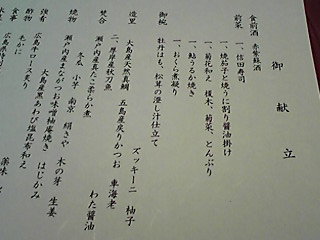 御献立
食前酒　赤紫蘇酒
前菜　一、信田寿司
一、焼茄子と焼うに割り醤油掛け
一、菊花和え　榎木、菊菜、とんぶり
一、鮎うるか焼き
一、おくら煮凝り
御椀　牡丹はも、松茸の澄し汁仕立て
ズッキーニ　柚子
造里　一、大島産天然真鯛　五島産戻りかつお　車海老
二、厚岸産秋刀魚　わた醤油
焚合　瀬戸内産真たこ柔らか煮
冬瓜　小芋　南京　絹さや　木の芽　生姜
焼物　瀬戸内産まながつお味噌柚庵焼き　はじかみ
強肴　広島牛ロース炙り
酢物　大島産黒あわび塩昆布和え
毛かに
食事　広島県
薬味